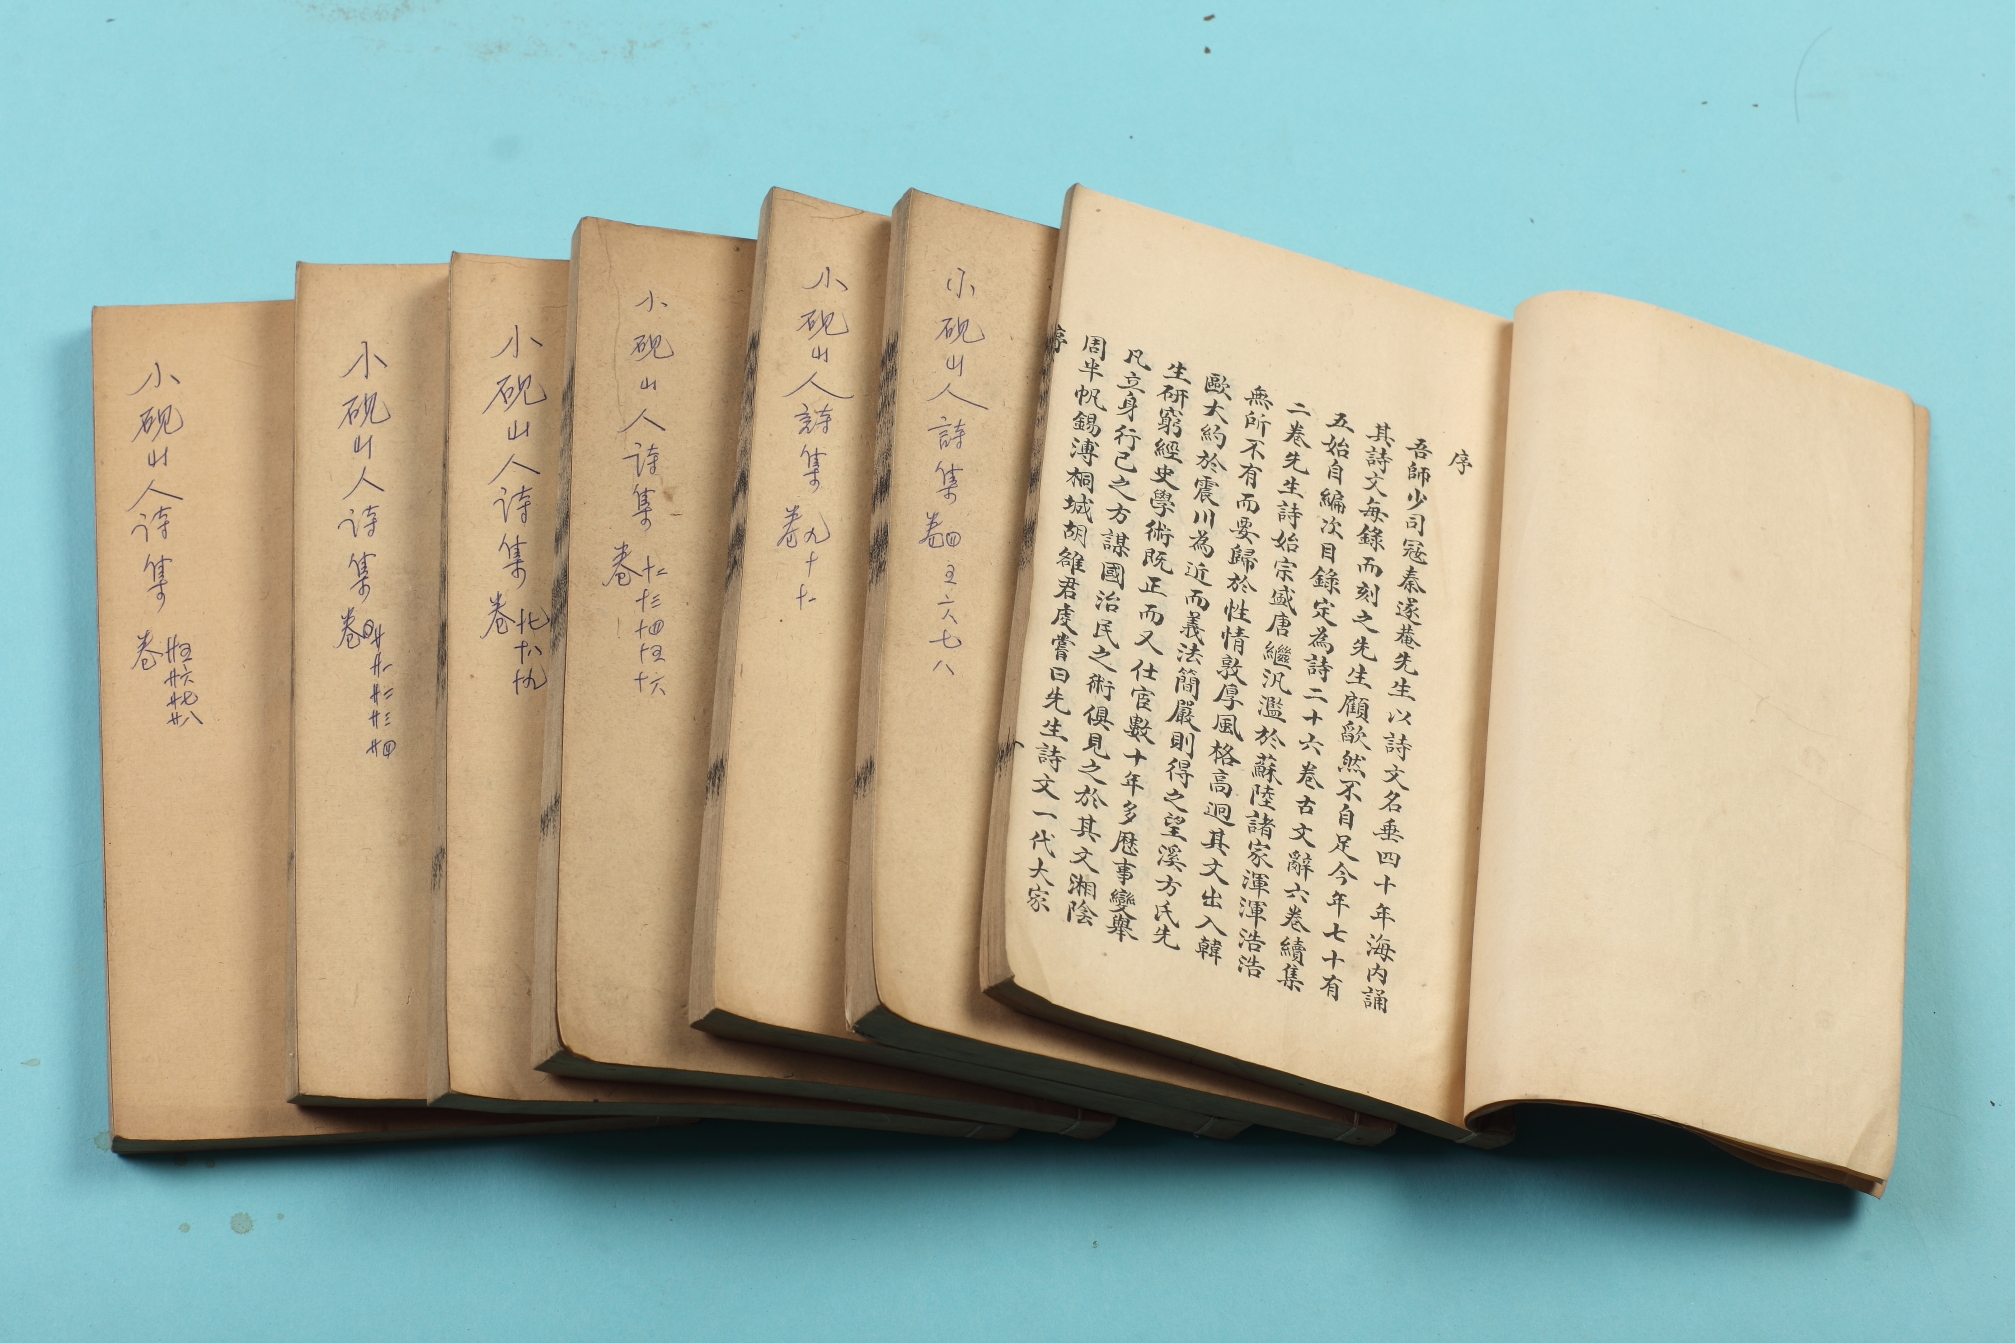 序
吾師少司寇秦遂菴先生以詩文名垂四十年海內誦
其詩文每錄而刻之先生顧歉然不自足今年七十有
五始自編次目錄定為詩二十六卷古文辭六卷續集
二卷先生詩始宗盛唐繼汎濫於蘇陸諸家渾渾浩浩
無所不有而要歸於性情敦厚風格高迥其文出入韓
歐大約於震川為近而義法簡嚴則得之望溪方氏先
生研窮經史學術既正而又仕宦數十年多歷事變舉
凡立身行己之方謀國治民之術俱見之於其文湘陰
周半帆錫溥桐城胡雒君虔嘗曰先生詩文一代大家
序
小硯山人詩集 卷四五六七八
小硯山人詩集 卷九十十一
小硯山人诗集 卷十二十三十四十五十六
小硯山人诗集 卷十七十八十九
小硯山人诗集 卷廿廿一廿二廿三廿四
小硯山人诗集 卷廿五廿六廿七廿八